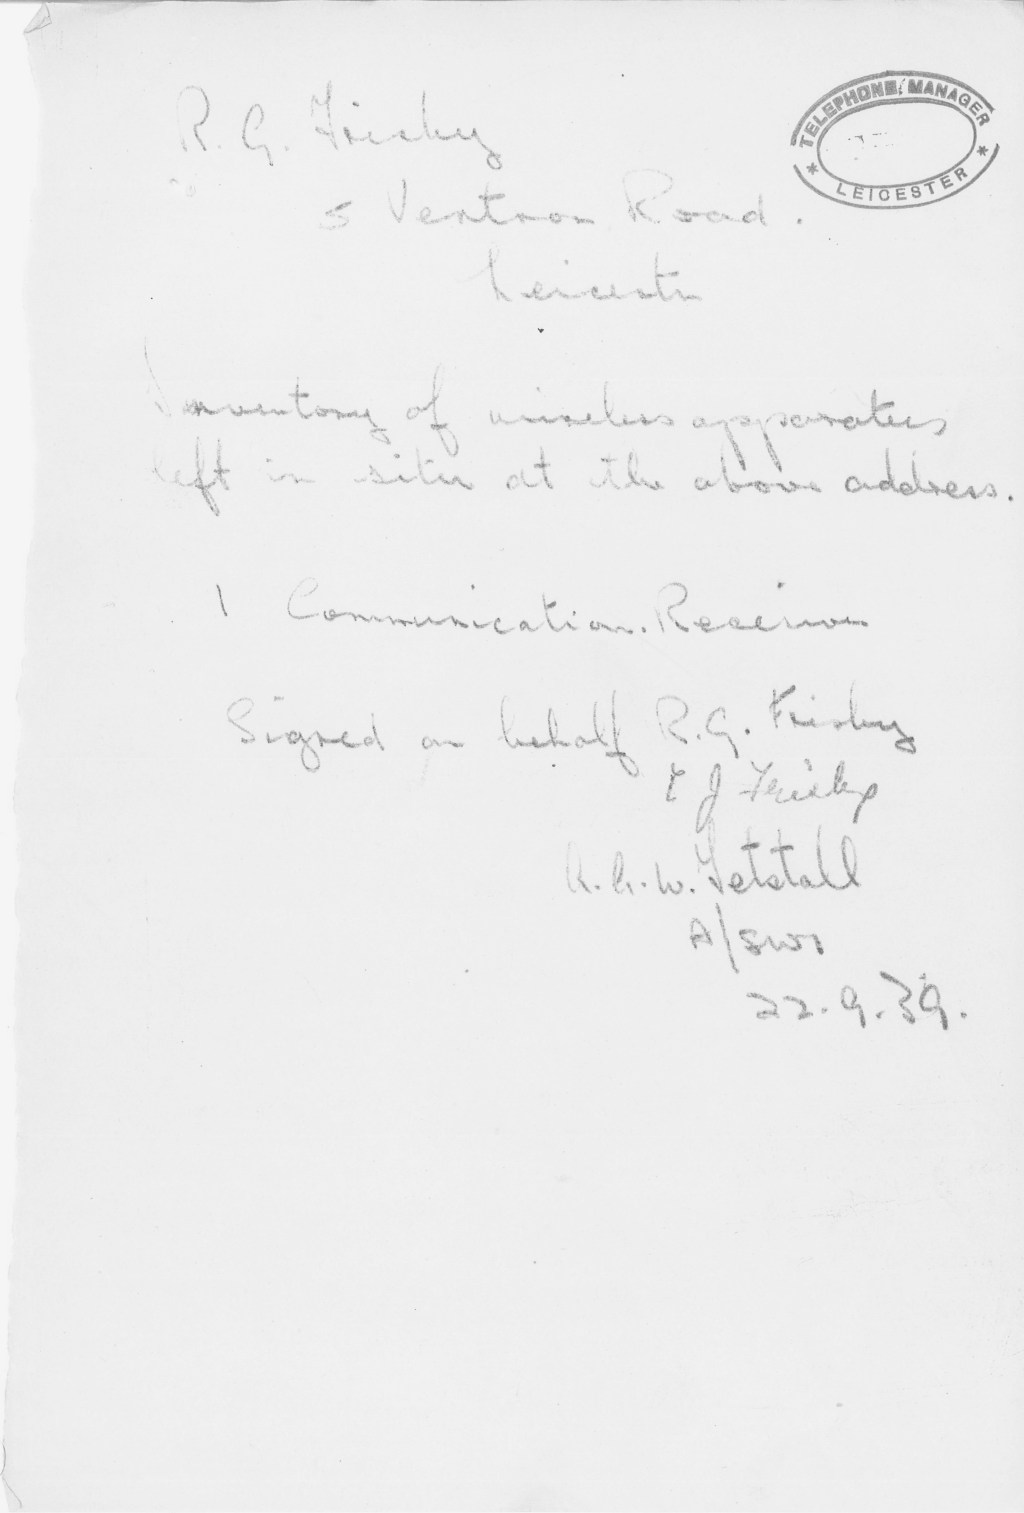 R. G. Frisby
TELEPHONE MANAGER
* LEICESTER *
5 Ventnor Road.
Leicester
Inventory of wireless apparatus
left in situ at the above address.
1 Communication. Receiver
Signed on behalf R.G. Frisby
J Frisby
A/SWI
22.9.39.